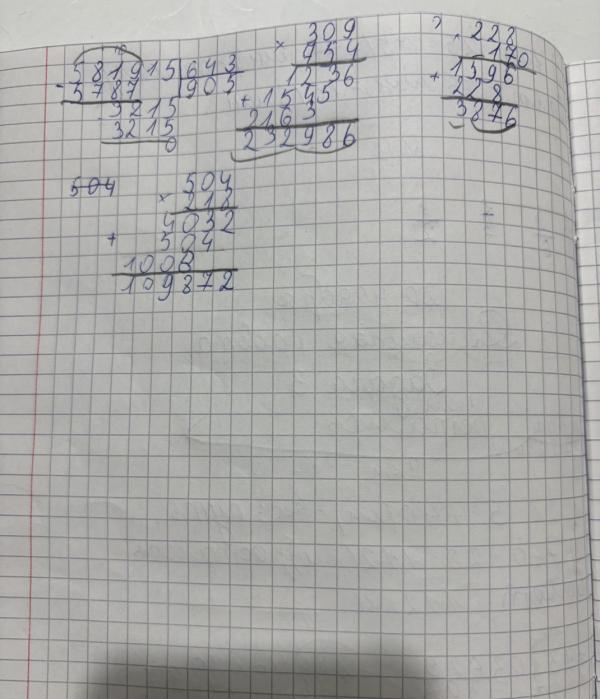 581915 | 643
- 5787 | 905
3215
- 3215
0
309
× 954
1236
+ 1545
2163
232986
228
× 170
1596
+ 228
3876
504
504
× 218
4032
+ 504
1008
109872